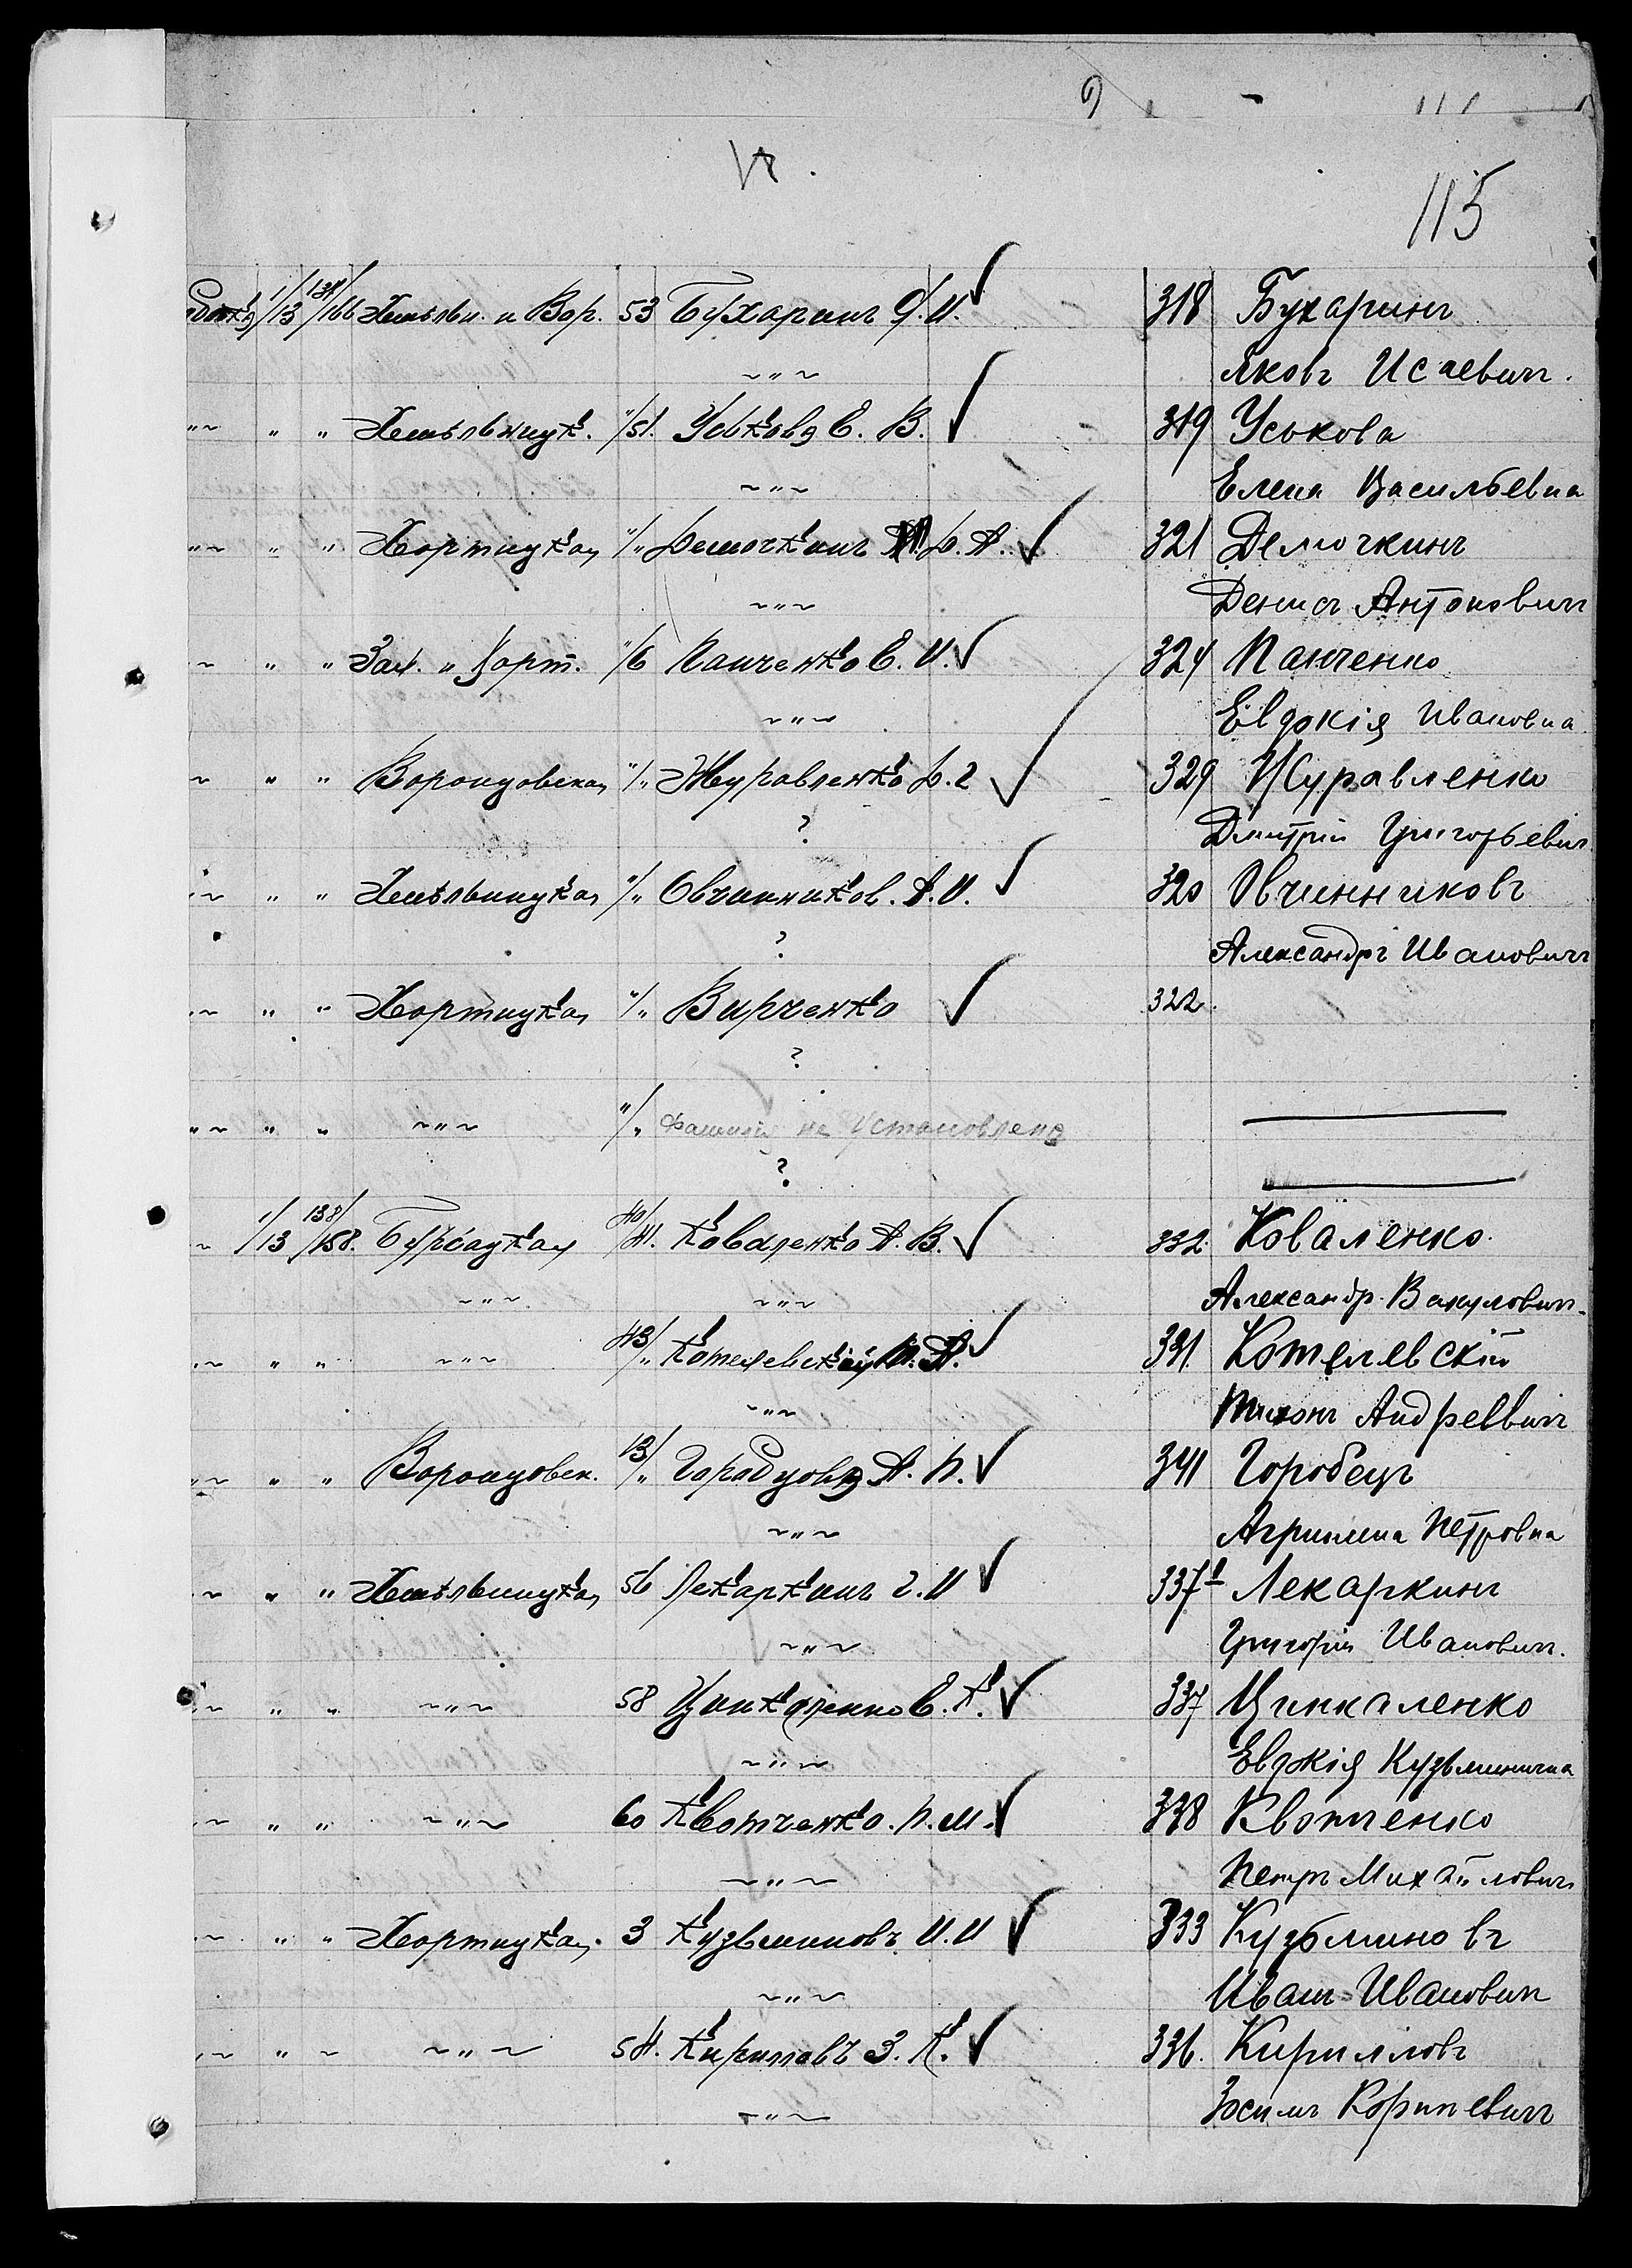 9
VI.
115
1/13 138/166 Хмѣльн. и Вор. 53 Бухаринъ Я. И. 318 Бухаринъ
~"~ Яковъ Исаевичъ.
"~ " " Хмѣльницк. "/51. Уськова Е. В. 319 Уськова
~"~ Елена Васильевна
"~ " " Хортицкая "/" Демочкинъ Д. А. 321 Демочкинъ
~"~ Денисъ Антоновичъ
~ " " Зал. и Хорт. "/6 Панченко Е. И. 324 Панченко
~"~ Евдокія Ивановна
~ " " Воронцовская "/" Журавленко Д. Г 329 Журавленко
? Дмитрій Григорьевич
"~ " " Хмѣльницкая "/" Овчинников. А. И. 320 Овчинниковъ
? Александръ Ивановичъ
"~ " " Хортицкая "/" Вирченко 322.
?
"~ " " ~"~ "/" Фамилія не установлена
?
~ 1/13 138/158. Бурсацкая 40/41. Коваленко А. В. 332. Коваленко.
~"~ ~"~ Александр. Вакулович.
"~ " " ~"~ 43/" Котелевскій Т. А. 331. Котелевскій
~"~ Тихонъ Андреевичъ
"~ " " Воронцовск. 13/" Городцова А. П. 341 Горобецъ
~"~ Агрипина Петровна
"~ " " Хмѣльницкая 56 Лекаркинъ Г. И 337¹ Лекаркинъ
~"~ Григорій Ивановичъ.
"~ " " ~"~ 58 Цинкаленко Е. К. 337 Цинкаленко
~"~ Евдокія Кузьминична
"~ " " ~"~ 60 Квотченко. П. М. 338 Квотченко
~"~ Петръ Михайлович
"~ " " Хортицкая. 3 Кузьминовъ И. И 333 Кузьминовъ
~"~ Иванъ Ивановичъ
"~ " ~ ~"~ 54. Кириловъ З. К. 336. Кирилловъ
~"~ Зосимъ